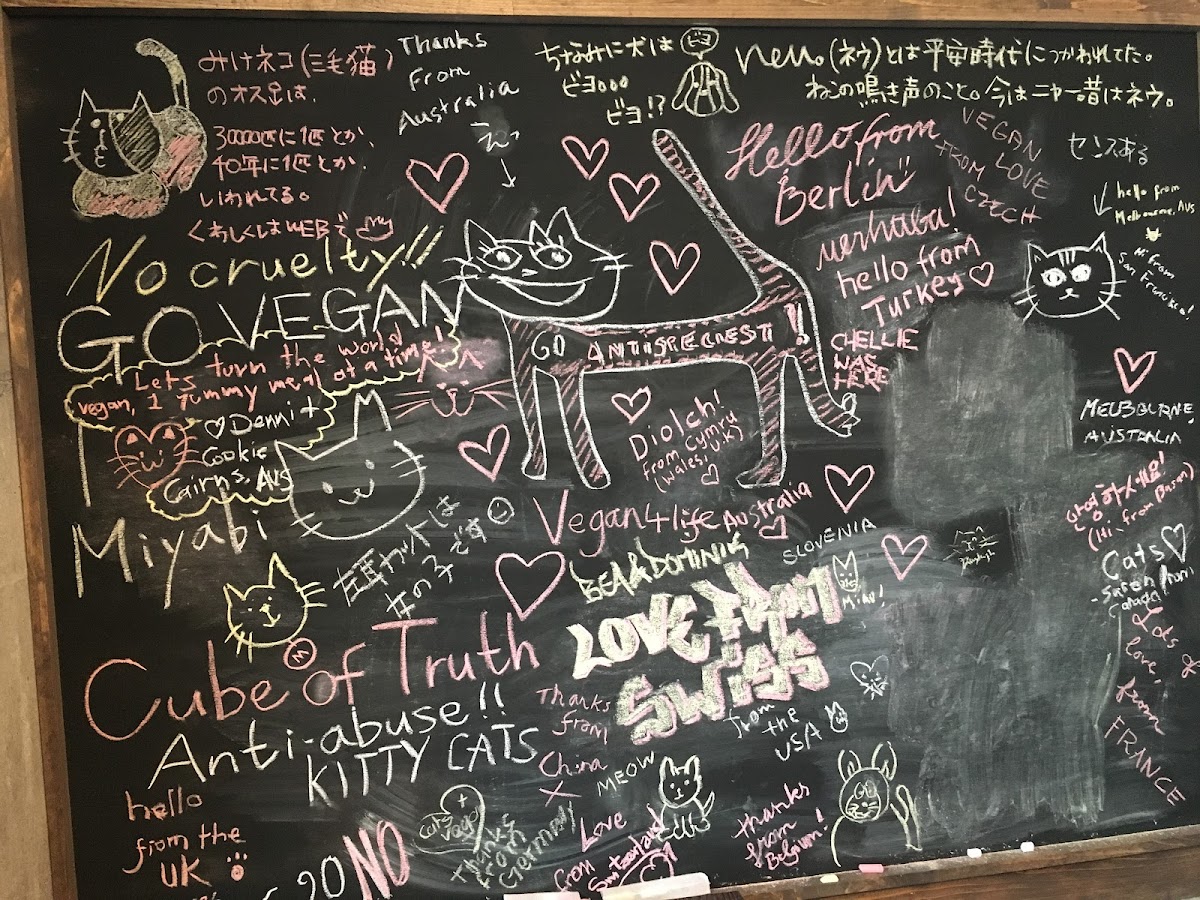 みけネコ(三毛猫)
のオスは、
30000匹に1匹とか、
40年に1匹とか、
いわれてる。
くわしくはWEBで
Thanks
From
Australia
ちなみに犬は
ビヨ
ビヨ。。。
ビヨ!?
neu。(ネウ)とは平安時代につかわれてた。
ねこの鳴き声のこと。今はニャー昔はネウ。
Hello from
Berlin
VEGAN
LOVE
FROM
CZECH
センスある
hello from
Melbourne, Aus
Hi from
San Francisco!
merhaba!
hello from
Turkey
No cruelty!!
GO VEGAN
Lets turn the world
vegan, 1 yummy meal at a time!
Denni +
Cookie
Cairns, Aus
GO ANTISPECIESIST!
CHELLIE
WAS
HERE
MELBOURNE,
AUSTRALIA
Diolch!
From Cymru
(Wales, UK)
Miyabi
左耳カットは
女の子です
Vegan4life
Australia
BEA & DOMINIG
SLOVENIA
Miau!
LOVE FROM
SWISS
안녕하세요!
(Hi from Busan)
Cats
- Sarah from
Canada!
Lots of
love,
from
FRANCE
Cube of Truth
M
Anti-abuse!!
KITTY CATS
Thanks
from
China
X
From
the
USA
MEOW
hello
from the
UK
NO
Thanks
from
Germany
Love
from
Switzerland
thanks
from
Belgium!